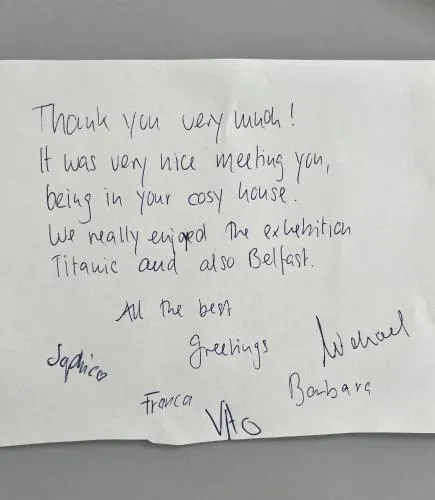 Thank you very much!
It was very nice meeting you,
being in your cosy house.
We really enjoyed the exhebition
Titanic and also Belfast.
All the best
Greetings
Michael
Franca
Barbara